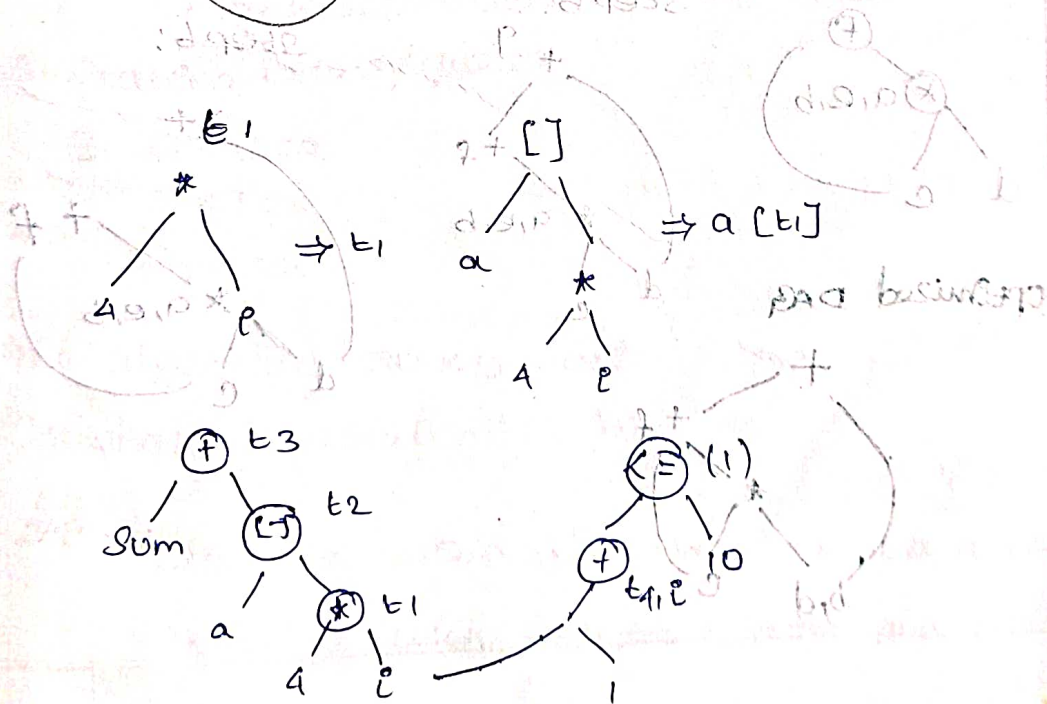 t1
*
4 i
⇒ t1
[]
a
*
4 i
⇒ a [t1]
+ t3
Sum [] t2
a * t1
4 i
<= (1)
+ 10
t4, i
1